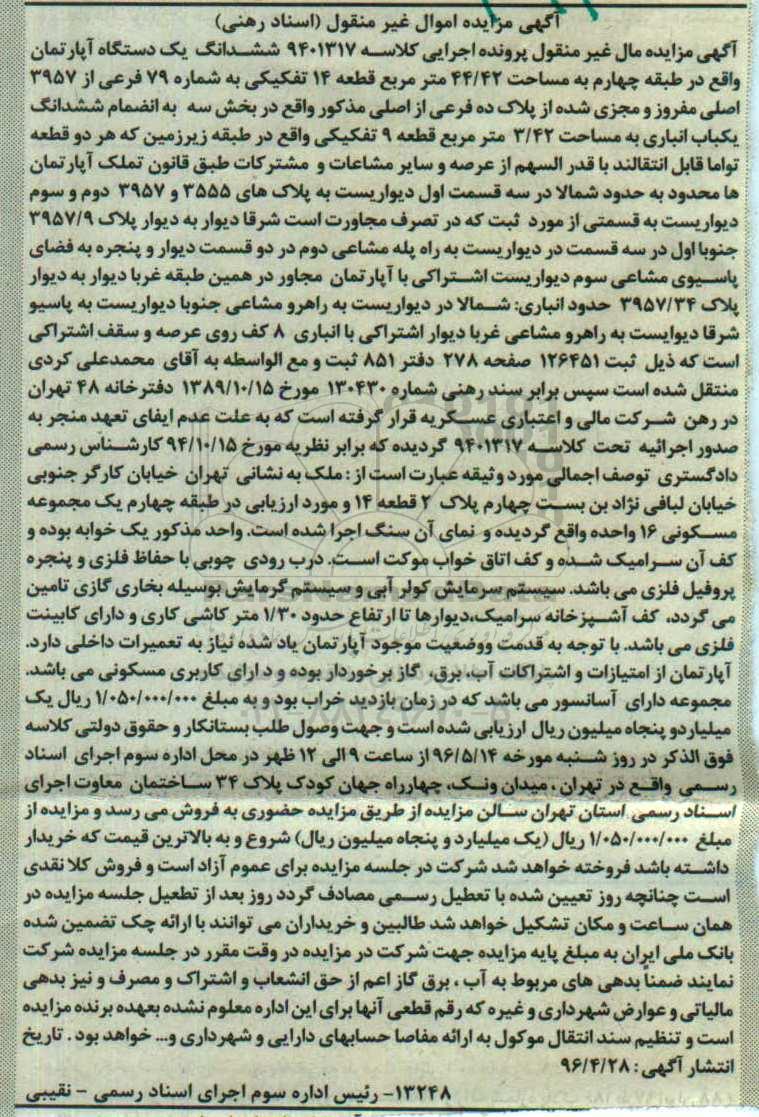 آگهی مزایده اموال غیر منقول (اسناد رهنی)
آگهی مزایده مال غیر منقول پرونده اجرایی کلاسه ۹۴۰۱۳۱۷ ششدانگ یک دستگاه آپارتمان
واقع در طبقه چهارم به مساحت ۴۴/۴۲ متر مربع قطعه ۱۴ تفکیکی به شماره ۷۹ فرعی از ۳۹۵۷
اصلی مفروز و مجزی شده از پلاک ده فرعی از اصلی مذکور واقع در بخش سه به انضمام ششدانگ
یکباب انباری به مساحت ۳/۴۲ متر مربع قطعه ۹ تفکیکی واقع در طبقه زیرزمین که هر دو قطعه
تواما قابل انتقالند با قدر السهم از عرصه و سایر مشاعات و مشترکات طبق قانون تملک آپارتمان
ها محدود به حدود شمالا در سه قسمت اول دیواریست به پلاک های ۳۵۵۵ و ۳۹۵۷ دوم و سوم
دیواریست به قسمتی از مورد ثبت که در تصرف مجاورت است شرقا دیوار به دیوار پلاک ۳۹۵۷/۹
جنوبا اول در سه قسمت در دیواریست به راه پله مشاعی دوم در دو قسمت دیوار و پنجره به فضای
پاسیوی مشاعی سوم دیواریست اشتراکی با آپارتمان مجاور در همین طبقه غربا دیوار به دیوار
پلاک ۳۹۵۷/۳۴ حدود انباری: شمالا در دیواریست به راهرو مشاعی جنوبا دیواریست به پاسیو
شرقا دیوایست به راهرو مشاعی غربا دیوار اشتراکی با انباری ۸ کف روی عرصه و سقف اشتراکی
است که ذیل ثبت ۱۲۶۴۵۱ صفحه ۲۷۸ دفتر ۸۵۱ ثبت و مع الواسطه به آقای محمدعلی کردی
منتقل شده است سپس برابر سند رهنی شماره ۱۳۰۴۳۰ مورخ ۱۳۸۹/۱۰/۱۵ دفترخانه ۴۸ تهران
در رهن شرکت مالی و اعتباری عسکریه قرار گرفته است که به علت عدم ایفای تعهد منجر به
صدور اجرائیه تحت کلاسه ۹۴۰۱۳۱۷ گردیده که برابر نظریه مورخ ۹۴/۱۰/۱۵ کارشناس رسمی
دادگستری توصف اجمالی مورد وثیقه عبارت است از : ملک به نشانی تهران خیابان کارگر جنوبی
خیابان لبافی نژاد بن بست چهارم پلاک ۲ قطعه ۱۴ و مورد ارزیابی در طبقه چهارم یک مجموعه
مسکونی ۱۶ واحده واقع گردیده و نمای آن سنگ اجرا شده است. واحد مذکور یک خوابه بوده و
کف آن سرامیک شده و کف اتاق خواب موکت است. درب رودی چوبی با حفاظ فلزی و پنجره
پروفیل فلزی می باشد. سیستم سرمایش کولر آبی و سیستم گرمایش بوسیله بخاری گازی تامین
می گردد، کف آشپزخانه سرامیک،دیوارها تا ارتفاع حدود ۱/۳۰ متر کاشی کاری و دارای کابینت
فلزی می باشد. با توجه به قدمت ووضعیت موجود آپارتمان یاد شده نیاز به تعمیرات داخلی دارد.
آپارتمان از امتیازات و اشتراکات آب، برق، گاز برخوردار بوده و د ارای کاربری مسکونی می باشد.
مجموعه دارای آسانسور می باشد که در زمان بازدید خراب بود و به مبلغ ۱/۰۵۰/۰۰۰/۰۰۰ ریال یک
میلیاردو پنجاه میلیون ریال ارزیابی شده است و جهت وصول طلب بستانکار و حقوق دولتی کلاسه
فوق الذکر در روز شنبه مورخه ۹۶/۵/۱۴ از ساعت ۹ الی ۱۲ ظهر در محل اداره سوم اجرای اسناد
رسمی واقع در تهران ، میدان ونک، چهارراه جهان کودک پلاک ۳۴ ساختمان معاوت اجرای
اسناد رسمی استان تهران سالن مزایده از طریق مزایده حضوری به فروش می رسد و مزایده از
مبلغ ۱/۰۵۰/۰۰۰/۰۰۰ ریال (یک میلیارد و پنجاه میلیون ریال) شروع و به بالاترین قیمت که خریدار
داشته باشد فروخته خواهد شد شرکت در جلسه مزایده برای عموم آزاد است و فروش کلا نقدی
است چنانچه روز تعیین شده با تعطیل رسمی مصادف گردد روز بعد از تطعیل جلسه مزایده در
همان ساعت و مکان تشکیل خواهد شد طالبین و خریداران می توانند با ارائه چک تضمین شده
بانک ملی ایران به مبلغ پایه مزایده جهت شرکت در مزایده در وقت مقرر در جلسه مزایده شرکت
نمایند ضمناً بدهی های مربوط به آب ، برق گاز اعم از حق انشعاب و اشتراک و مصرف و نیز بدهی
مالیاتی و عوارض شهرداری و غیره که رقم قطعی آنها برای این اداره معلوم نشده بعهده برنده مزایده
است و تنظیم سند انتقال موکول به ارائه مفاصا حسابهای دارایی و شهرداری و... خواهد بود . تاریخ
انتشار آگهی : ۹۶/۴/۲۸
۱۳۲۴۸- رئیس اداره سوم اجرای اسناد رسمی - نقیبی